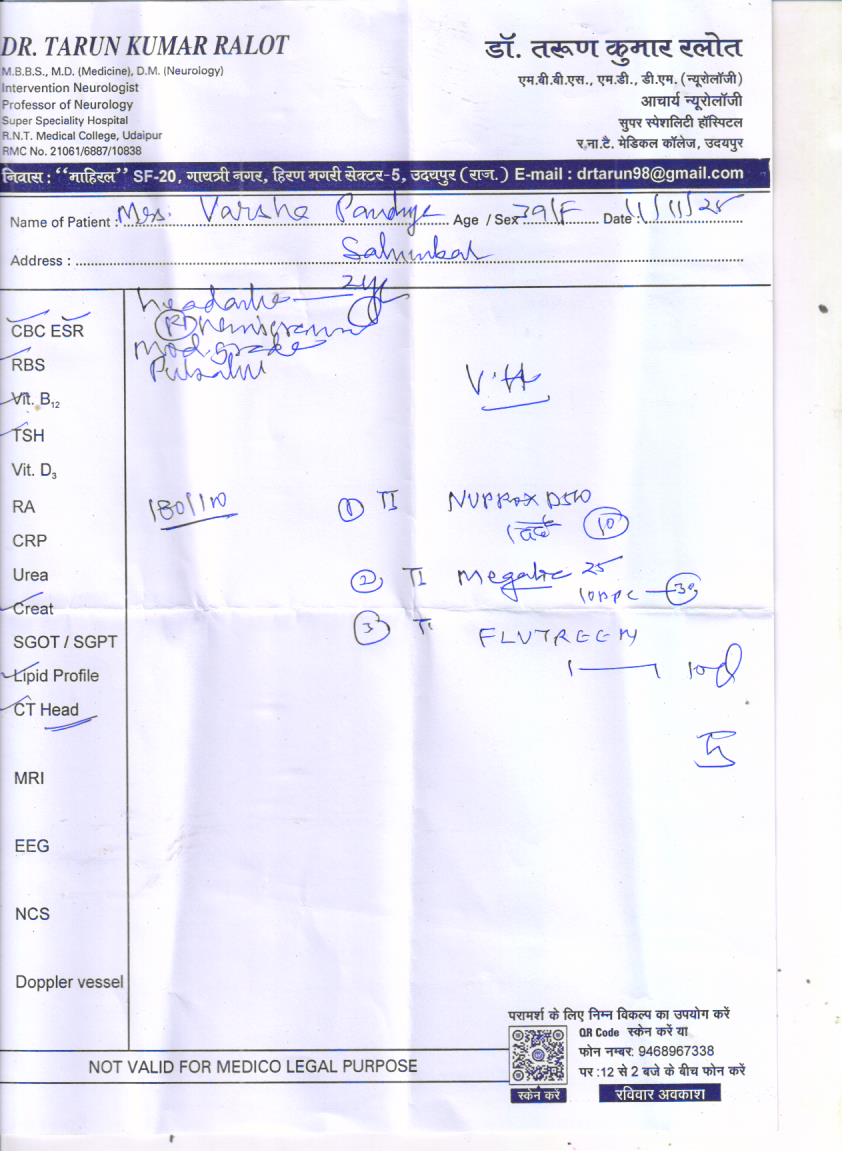 DR. TARUN KUMAR RALOT
M.B.B.S., M.D. (Medicine), D.M. (Neurology)
Intervention Neurologist
Professor of Neurology
Super Speciality Hospital
R.N.T. Medical College, Udaipur
RMC No. 21061/6887/10838
डॉ. तरूण कुमार रलोत
एम.बी.बी.एस., एम.डी., डी.एम. (न्यूरोलॉजी)
आचार्य न्यूरोलॉजी
सुपर स्पेशलिटी हॉस्पिटल
र.ना.टै. मेडिकल कॉलेज, उदयपुर
निवास : “माहिरल” SF-20, गायत्री नगर, हिरण मगरी सेक्टर-5, उदयपुर (राज.) E-mail : drtarun98@gmail.com
Name of Patient : Mrs. Varsha Age / Sex 39/F Date : 11/11/25
Address :
headache
Mod. grade
CBC ESR
RBS
Vit. B12
TSH
Vit. D3
RA
CRP
Urea
Creat
SGOT / SGPT
Lipid Profile
CT Head
MRI
EEG
NCS
Doppler vessel
① 10
② 25
30
③
परामर्श के लिए निम्न विकल्प का उपयोग करें
QR Code स्केन करें या
फोन नम्बर: 9468967338
पर :12 से 2 बजे के बीच फोन करें
स्केन करें
रविवार अवकाश
NOT VALID FOR MEDICO LEGAL PURPOSE